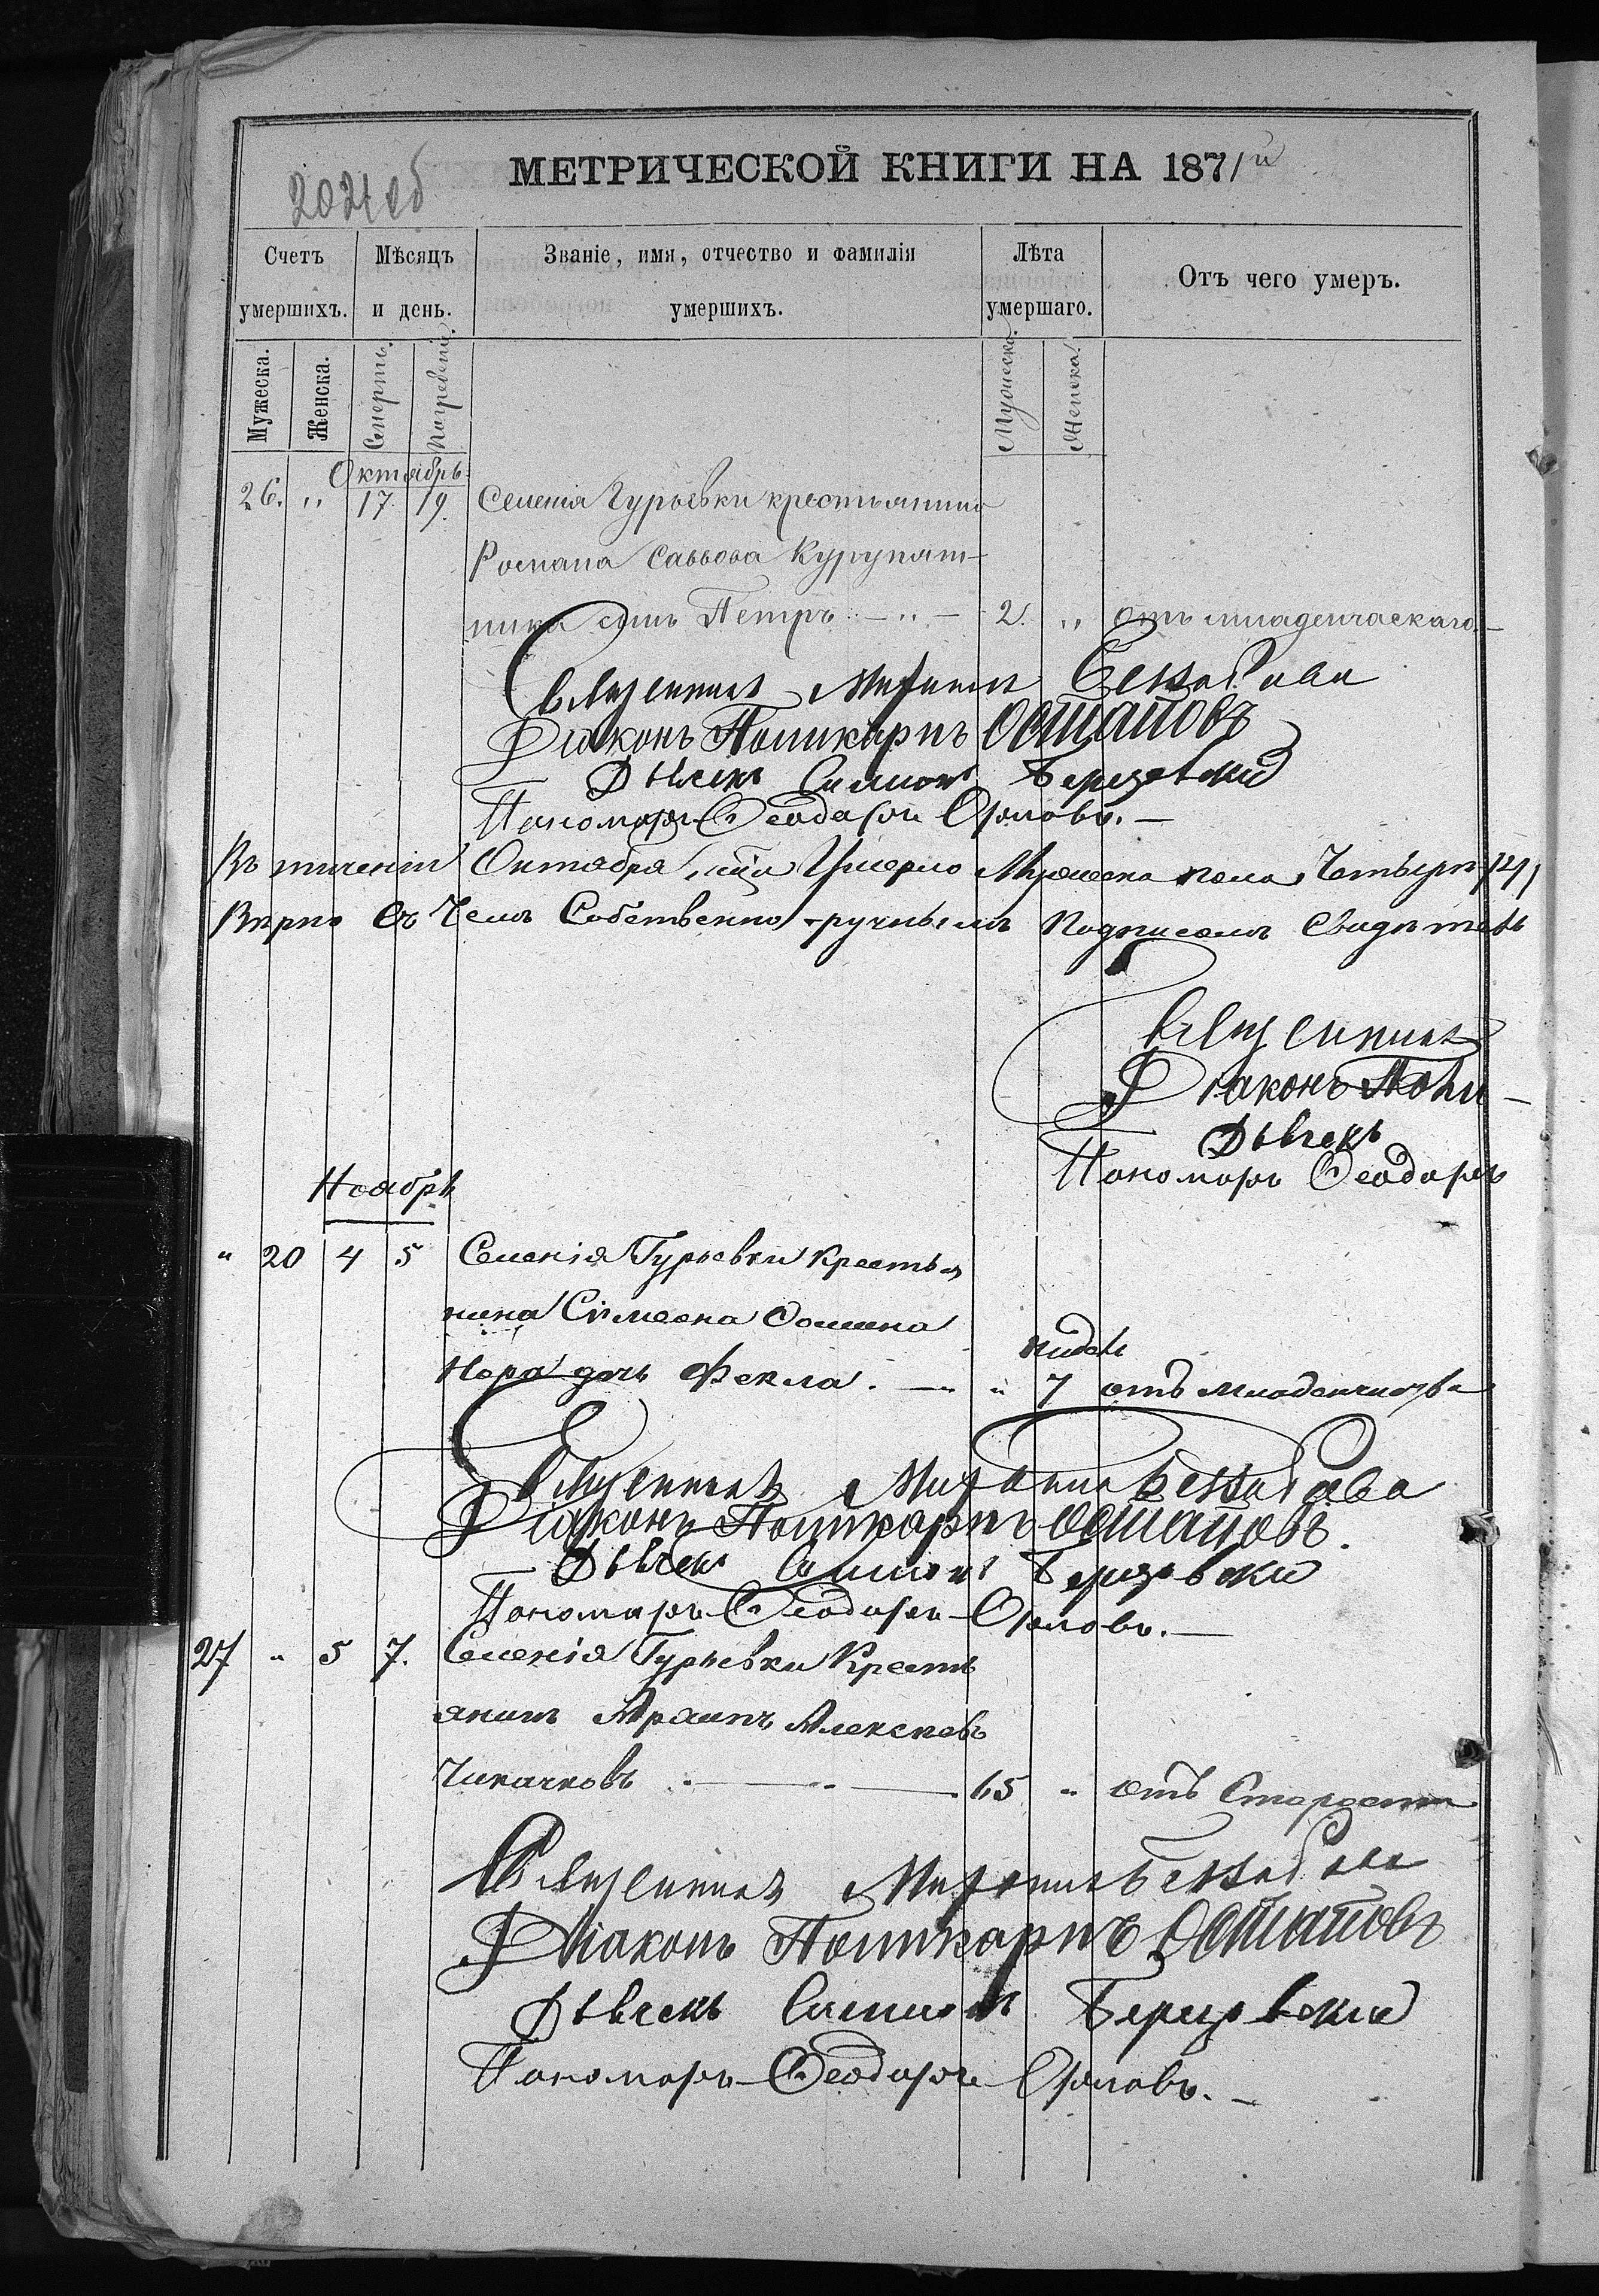 2021 об
МЕТРИЧЕСКОЙ КНИГИ НА 1871 й
Счетъ умершихъ.
Мѣсяцъ и день.
Званіе, имя, отчество и фамилія умершихъ.
Лѣта умершаго.
Отъ чего умеръ.
Мужеска. Женска. Смерти. Погребенія. Мужеска. Женска.
Октябрь.
26. " 17. 19. Селенія Гурьевки крестьянина
Романа Саввова Курупят-
ника сынъ Петръ — " — 2. " отъ младенческаго. —
Священникъ
Діаконъ Поликарпъ Остаповъ
Дьячекъ Симеонъ Березовскій
Пономарь Ѳеодоръ Орловъ. —
Въ теченіи Октября м-ца Умерло Мужеска пола Четыре /4/
Вѣрно Въ Чемъ Собственно-ручнымъ Подписомъ Свидѣтель
Священникъ
Діаконъ Поли-
Дьячекъ
Пономарь Ѳеодоръ
Ноябрь
" 20 4 5 Селенія Гурьевки Крестья
нина Сѵмеона
дочь Фекла. — " " 7 недѣль отъ младенчества
Священникъ
Діаконъ Поликарпъ Остаповъ.
Дьячекъ Симеонъ Березовскій
Пономарь Ѳеодоръ Орловъ. —
27 " 5 7. Селенія Гурьевки Кресть
янинъ Алексѣевъ
— " — 65 " отъ Старости
Священникъ
Діаконъ Поликарпъ Остаповъ
Дьячекъ Симеонъ Березовскій
Пономарь Ѳеодоръ Орловъ. —